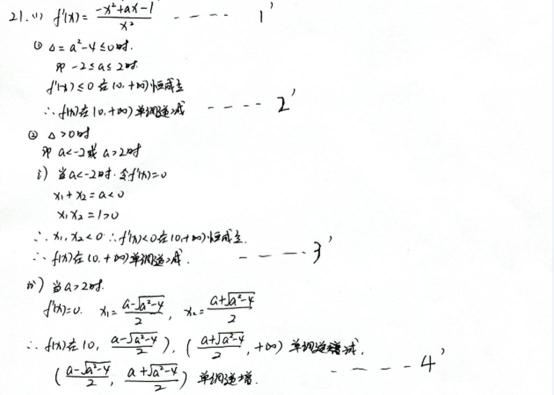 21. (1) f'(x) = (-x²+ax-1)/x² ---- 1'
① Δ = a²-4 ≤ 0时.
即 -2≤a≤2时.
f'(x) ≤ 0 在(0,+∞)恒成立
∴ f(x)在(0,+∞)单调递减 ---- 2'
② Δ>0时
即 a<-2或 a>2时
i) 当a<-2时. 令f'(x)=0
x₁+x₂=a<0
x₁x₂=1>0
∴ x₁, x₂<0 ∴ f'(x)<0在(0,+∞)恒成立.
∴ f(x)在(0,+∞)单调递减. ---- 3'
ii) 当a>2时.
f'(x)=0. x₁=(a-√(a²-4))/2, x₂=(a+√(a²-4))/2
∴ f(x)在(0, (a-√(a²-4))/2), ((a+√(a²-4))/2, +∞) 单调递减.
((a-√(a²-4))/2, (a+√(a²-4))/2) 单调递增. ---- 4'